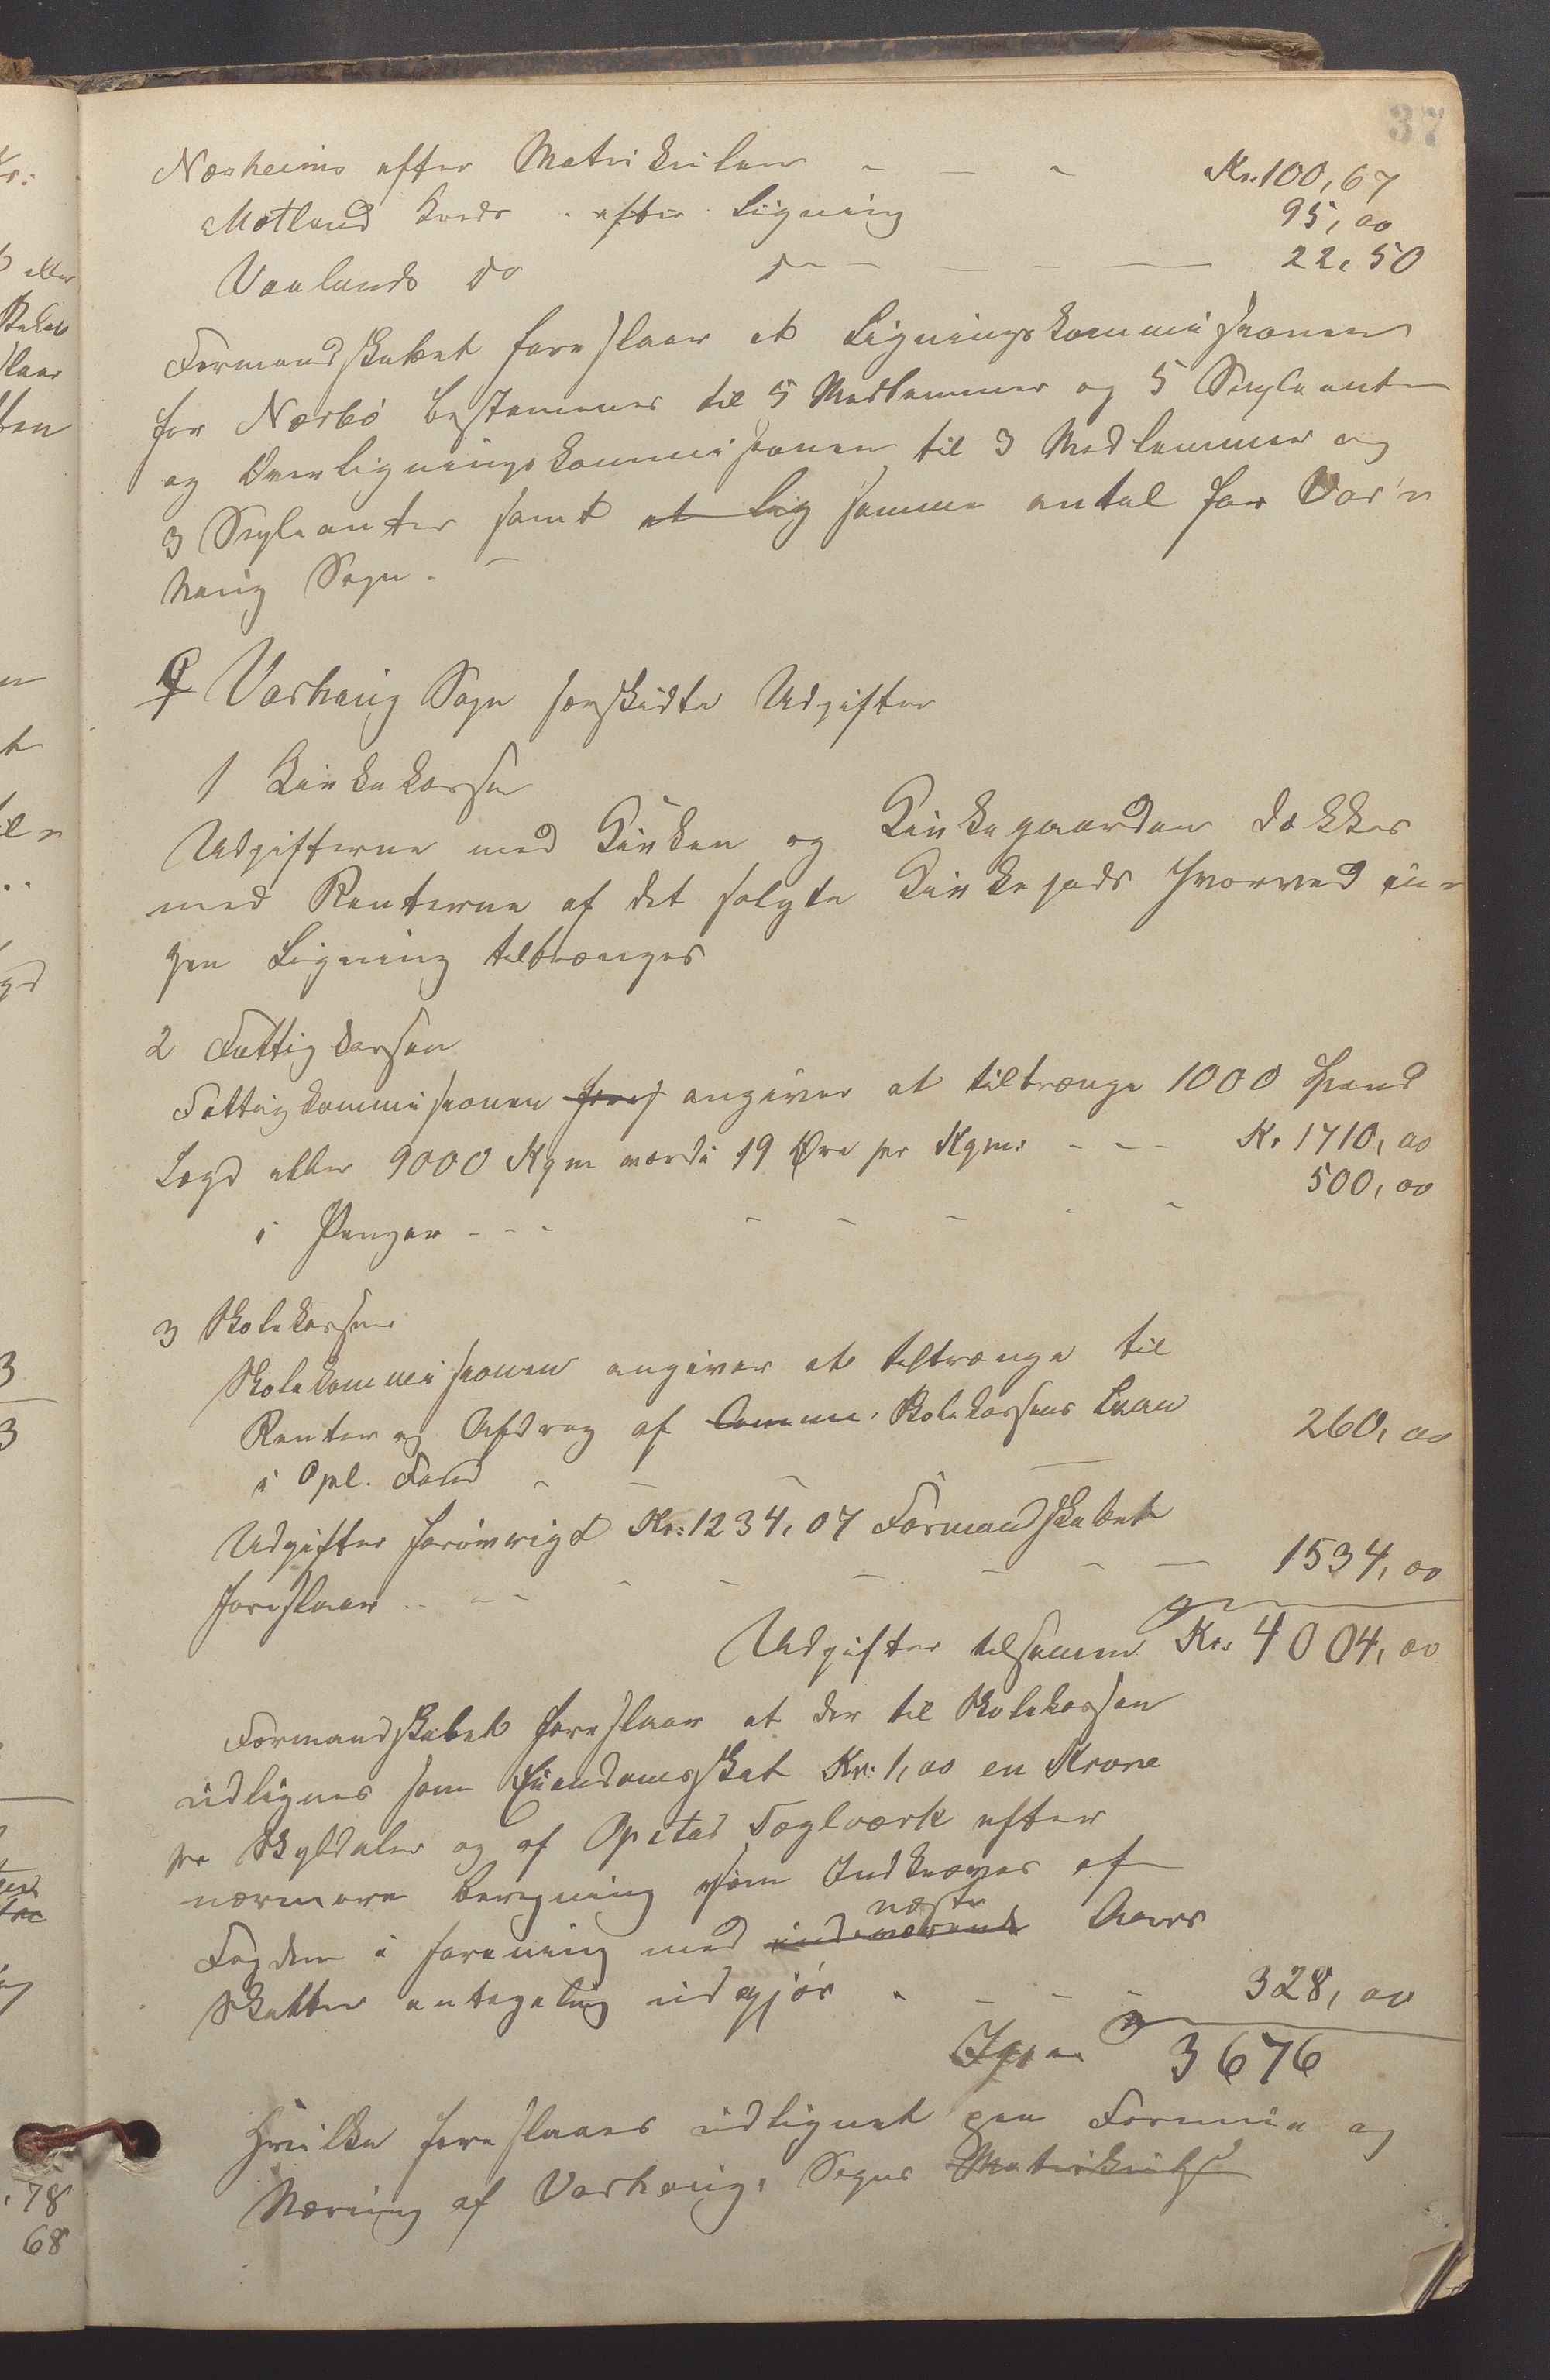 37
Næsheims efter Matrikulen - - - Kr. 100,67
Motland Kreds - efter Ligning 95,00
Vaulands do do - - - 22,50
Formandskabet foreslaar at Ligningskommissionen
for Nærbö bestemmes til 5 Medlemmer og 5 Supleanter
og Overligningskommissionen til 3 Medlemmer og
3 Supleanter samt at lig samme antal for Var-
haug Sogn. -
C Varhaug Sogn særskildte Udgifter
1 Kirkekassen
Udgifterne med Kirken og Kirkegaarden dækkes
med Renterne af det solgte Kirkejords hvorved in-
gen Ligning tiltrænges
2 Fattigkassen
Fattigkommissionen fores angiver at tiltrænge 1000 Spand
Lægd eller 9000 Kgm værdi 19 Øre pr Kgm: - - - Kr 1710,00
i Penger - - - 500,00
3 Skolekassen
Skolekommissionen angiver at tiltrænge til
Renter og Afdrag af Commu. Skolekassens Laan
i Opl. Fond - - - 260,00
Udgifter forövrigt Kr: 1234,07 Formandskabet
foreslaar - - - 1534,00
Udgifter tilsamm Kr: 4004,00
Formandskabet foreslaar at der til Skolekassen
udlignes som Eiendomsskat Kr: 1,00 en Krone
pr Skyldaler og af Opstad Teglværk efter
nærmere beregning som Indkræves af
næste
Fogden i forening med indeværende Aars
Skatter antagelig udgjör - - - 328,00
Igjen 3676
Hvilke foreslaaes udlignet paa Formue og
Næring af Varhaug. Sogns Matrikuls